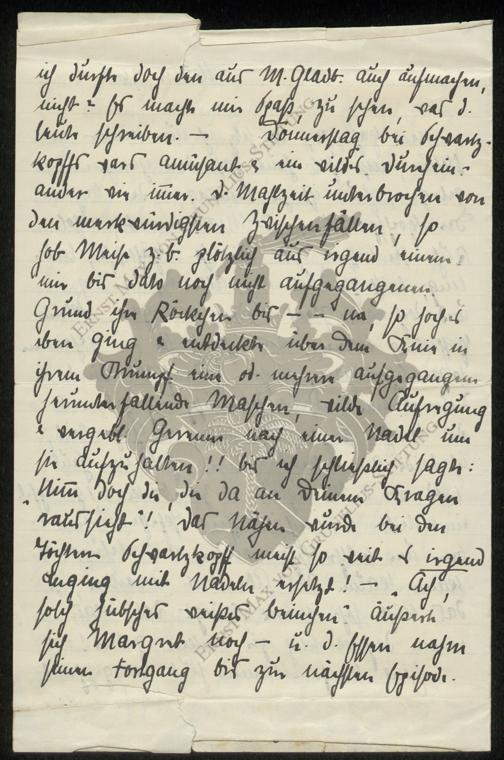 ich durfte doch den aus M. Gladb. auch aufmachen,
nicht? Es macht mir Spaß, zu sehen, was d.
Leute schreiben. — Donnerstag bei Schwartz-
kopffs wars amüsant & ein wildes Durchein-
ander wie immer. d. Mahlzeit unterbrochen von
den merkwürdigsten Zwischenfällen, so
hob Meise z. B. plötzlich aus irgend einem
mir bis dato noch nicht aufgegangenen
Grund ihr Röckchen bis — — na, so hoch es
eben ging & entdeckte über dem Knie in
ihrem Strumpf eine od. mehrere aufgegangene
herunterfallende Maschen, wilde Aufregung
& vergebl. Gerenne nach einer Nadel um
sie aufzuhalten!! bis ich schliesslich sagte:
"Nimm doch die, die da an Deinem Kragen
raussieht"! Das Nähen wurde bei den
Töchtern Schwartzkopff meist so weit es irgend
anging mit Nadeln ersetzt! — "Ach
solch hübsches weißes Beinchen" äußerte
sich Margret noch — u. d. Essen nahm
seinen Fortgang bis zur nächsten Episode.
ERNST MAX VON GRUNELIUS-STIFTUNG
ERNST MAX VON GRUNELIUS-STIFTUNG